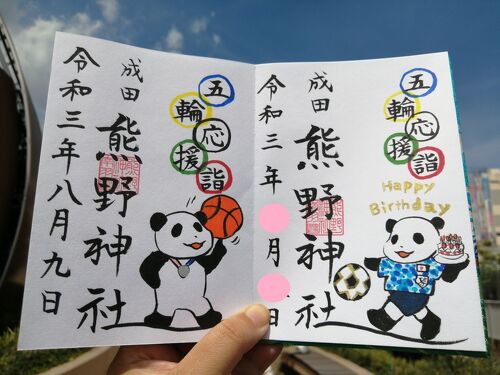 五輪応援詣
成田
熊野神社
令和三年八月九日
五輪応援詣
Happy
Birthday
成田
熊野神社
令和三年
月
日